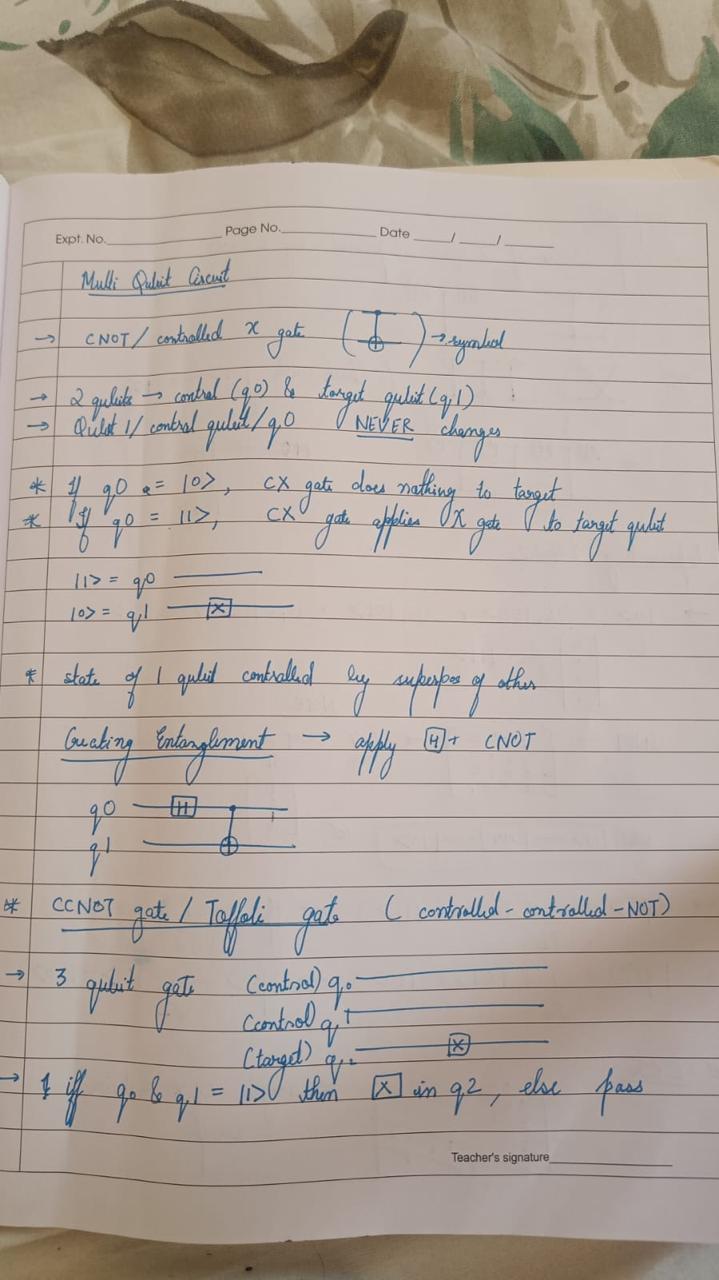 Expt. No. Page No. Date / /
Multi Qubit Circuit
→ CNOT / controlled X gate ( ⊕ ) → symbol
→ 2 qubits → control (q0) & target qubit (q1)
→ Qubit 1 / control qubit / q0 NEVER changes
* If q0 = |0>, CX gate does nothing to target
* If q0 = |1>, CX gate applies X gate to target qubit
|1> = q0
|0> = q1 X
* state of 1 qubit controlled by superpos of other
Creating Entanglement → apply H + CNOT
q0 H
q1 ⊕
* CCNOT gate / Toffoli gate ( controlled - controlled - NOT)
→ 3 qubit gate (control) q0
(control) q1
(target) q2 X
→ iff q0 & q1 = |1> then X in q2, else pass
Teacher's signature